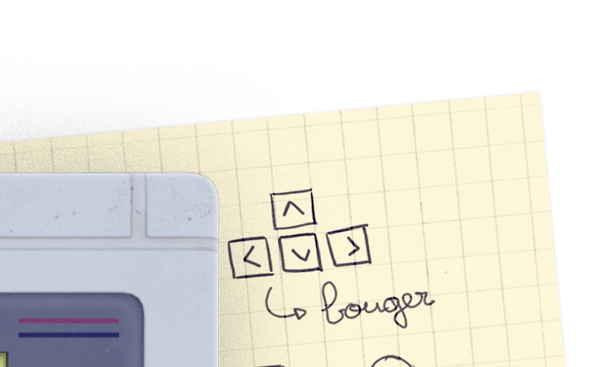 ^
< v >
bouger